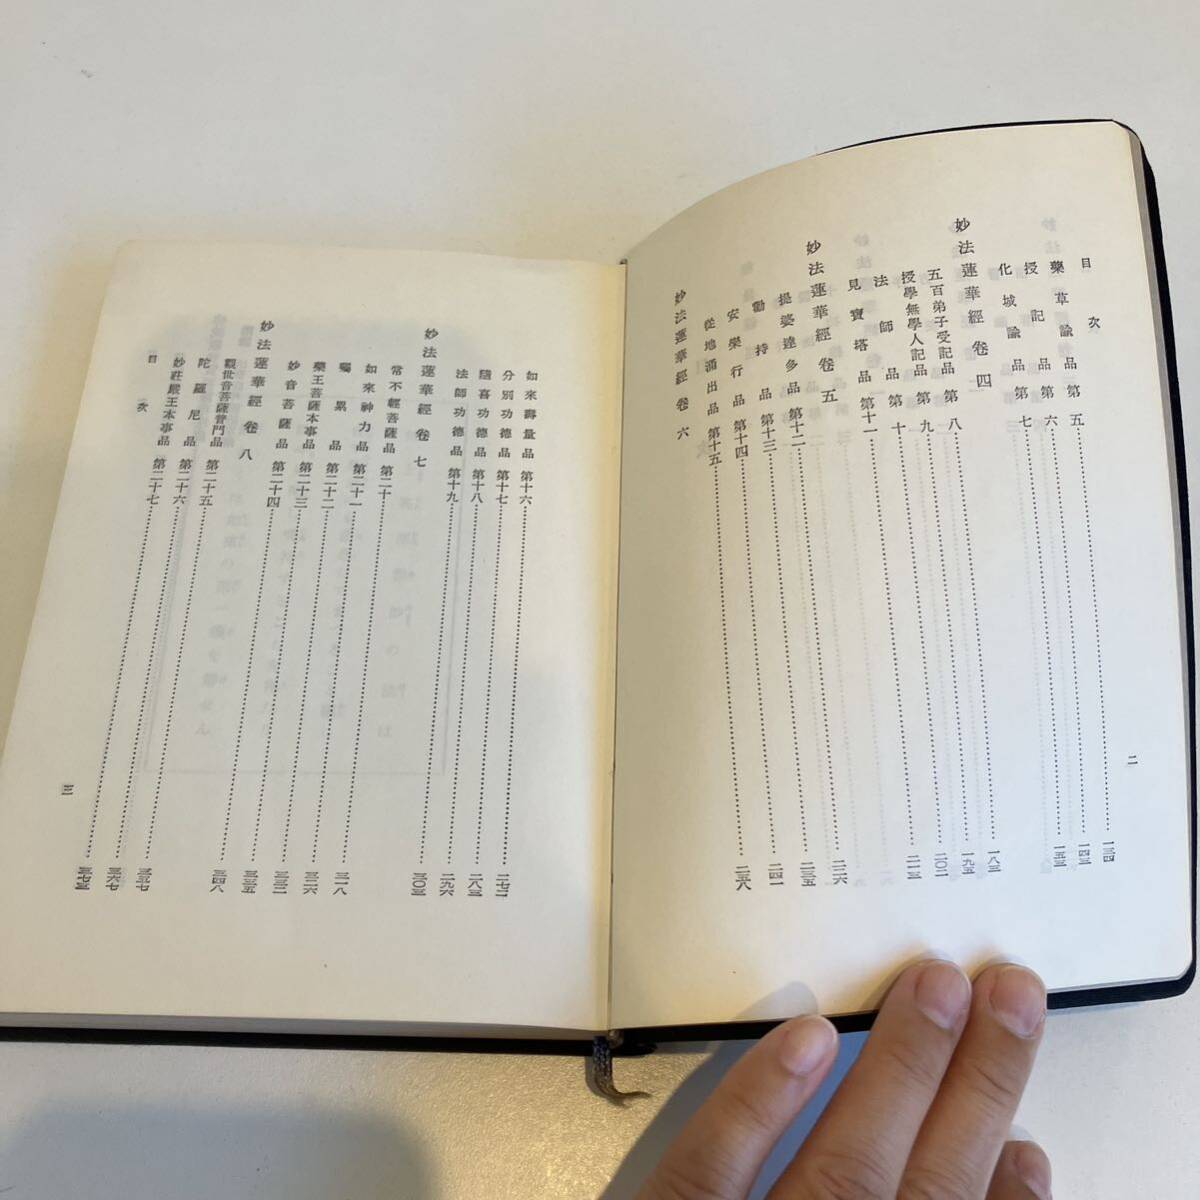 目次
藥草諭品第五……一三四
授記品第六……一四三
化城諭品第七……一五三
妙法蓮華經卷四
五百弟子受記品第八……一八三
授學無學人記品第九……一九五
法師品第十……二〇二
見寶塔品第十一……二一三
妙法蓮華經卷五
提婆達多品第十二……二二六
勸持品第十三……二三五
安樂行品第十四……二四一
從地涌出品第十五……二五八
妙法蓮華經卷六
二
如來壽量品第十六……二七二
分別功德品第十七……二八三
隨喜功德品第十八……二九六
法師功德品第十九……三〇三
妙法蓮華經卷七
常不輕菩薩品第二十……三一八
如來神力品第二十一……三二六
囑累品第二十二……三三一
藥王菩薩本事品第二十三……三三五
妙音菩薩品第二十四……三四八
妙法蓮華經卷八
觀世音菩薩普門品第二十五……三五七
陀羅尼品第二十六……三六七
妙莊嚴王本事品第二十七……三七三
目次
三